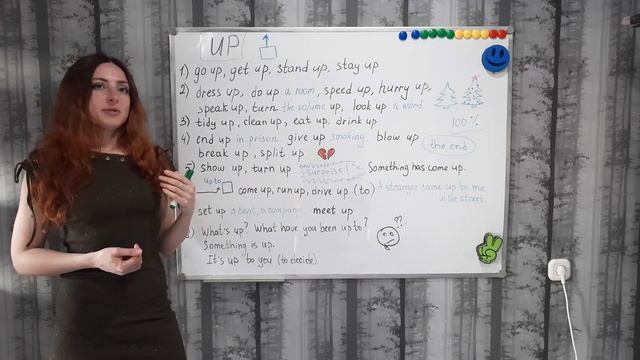 UP
1) go up, get up, stand up, stay up
2) dress up, do up a room, speed up, hurry up,
speak up, turn the volume up, look up a word
3) tidy up, clean up, eat up, drink up 100%
4) end up in prison give up smoking blow up the end
break up, split up
show up, turn up surprise! Something has come up.
up to come up, run up, drive up (to) A stranger came up to me
in the street.
set up a tent, a company meet up
) What's up? What have you been up to? ??
Something is up.
It's up to you (to decide)